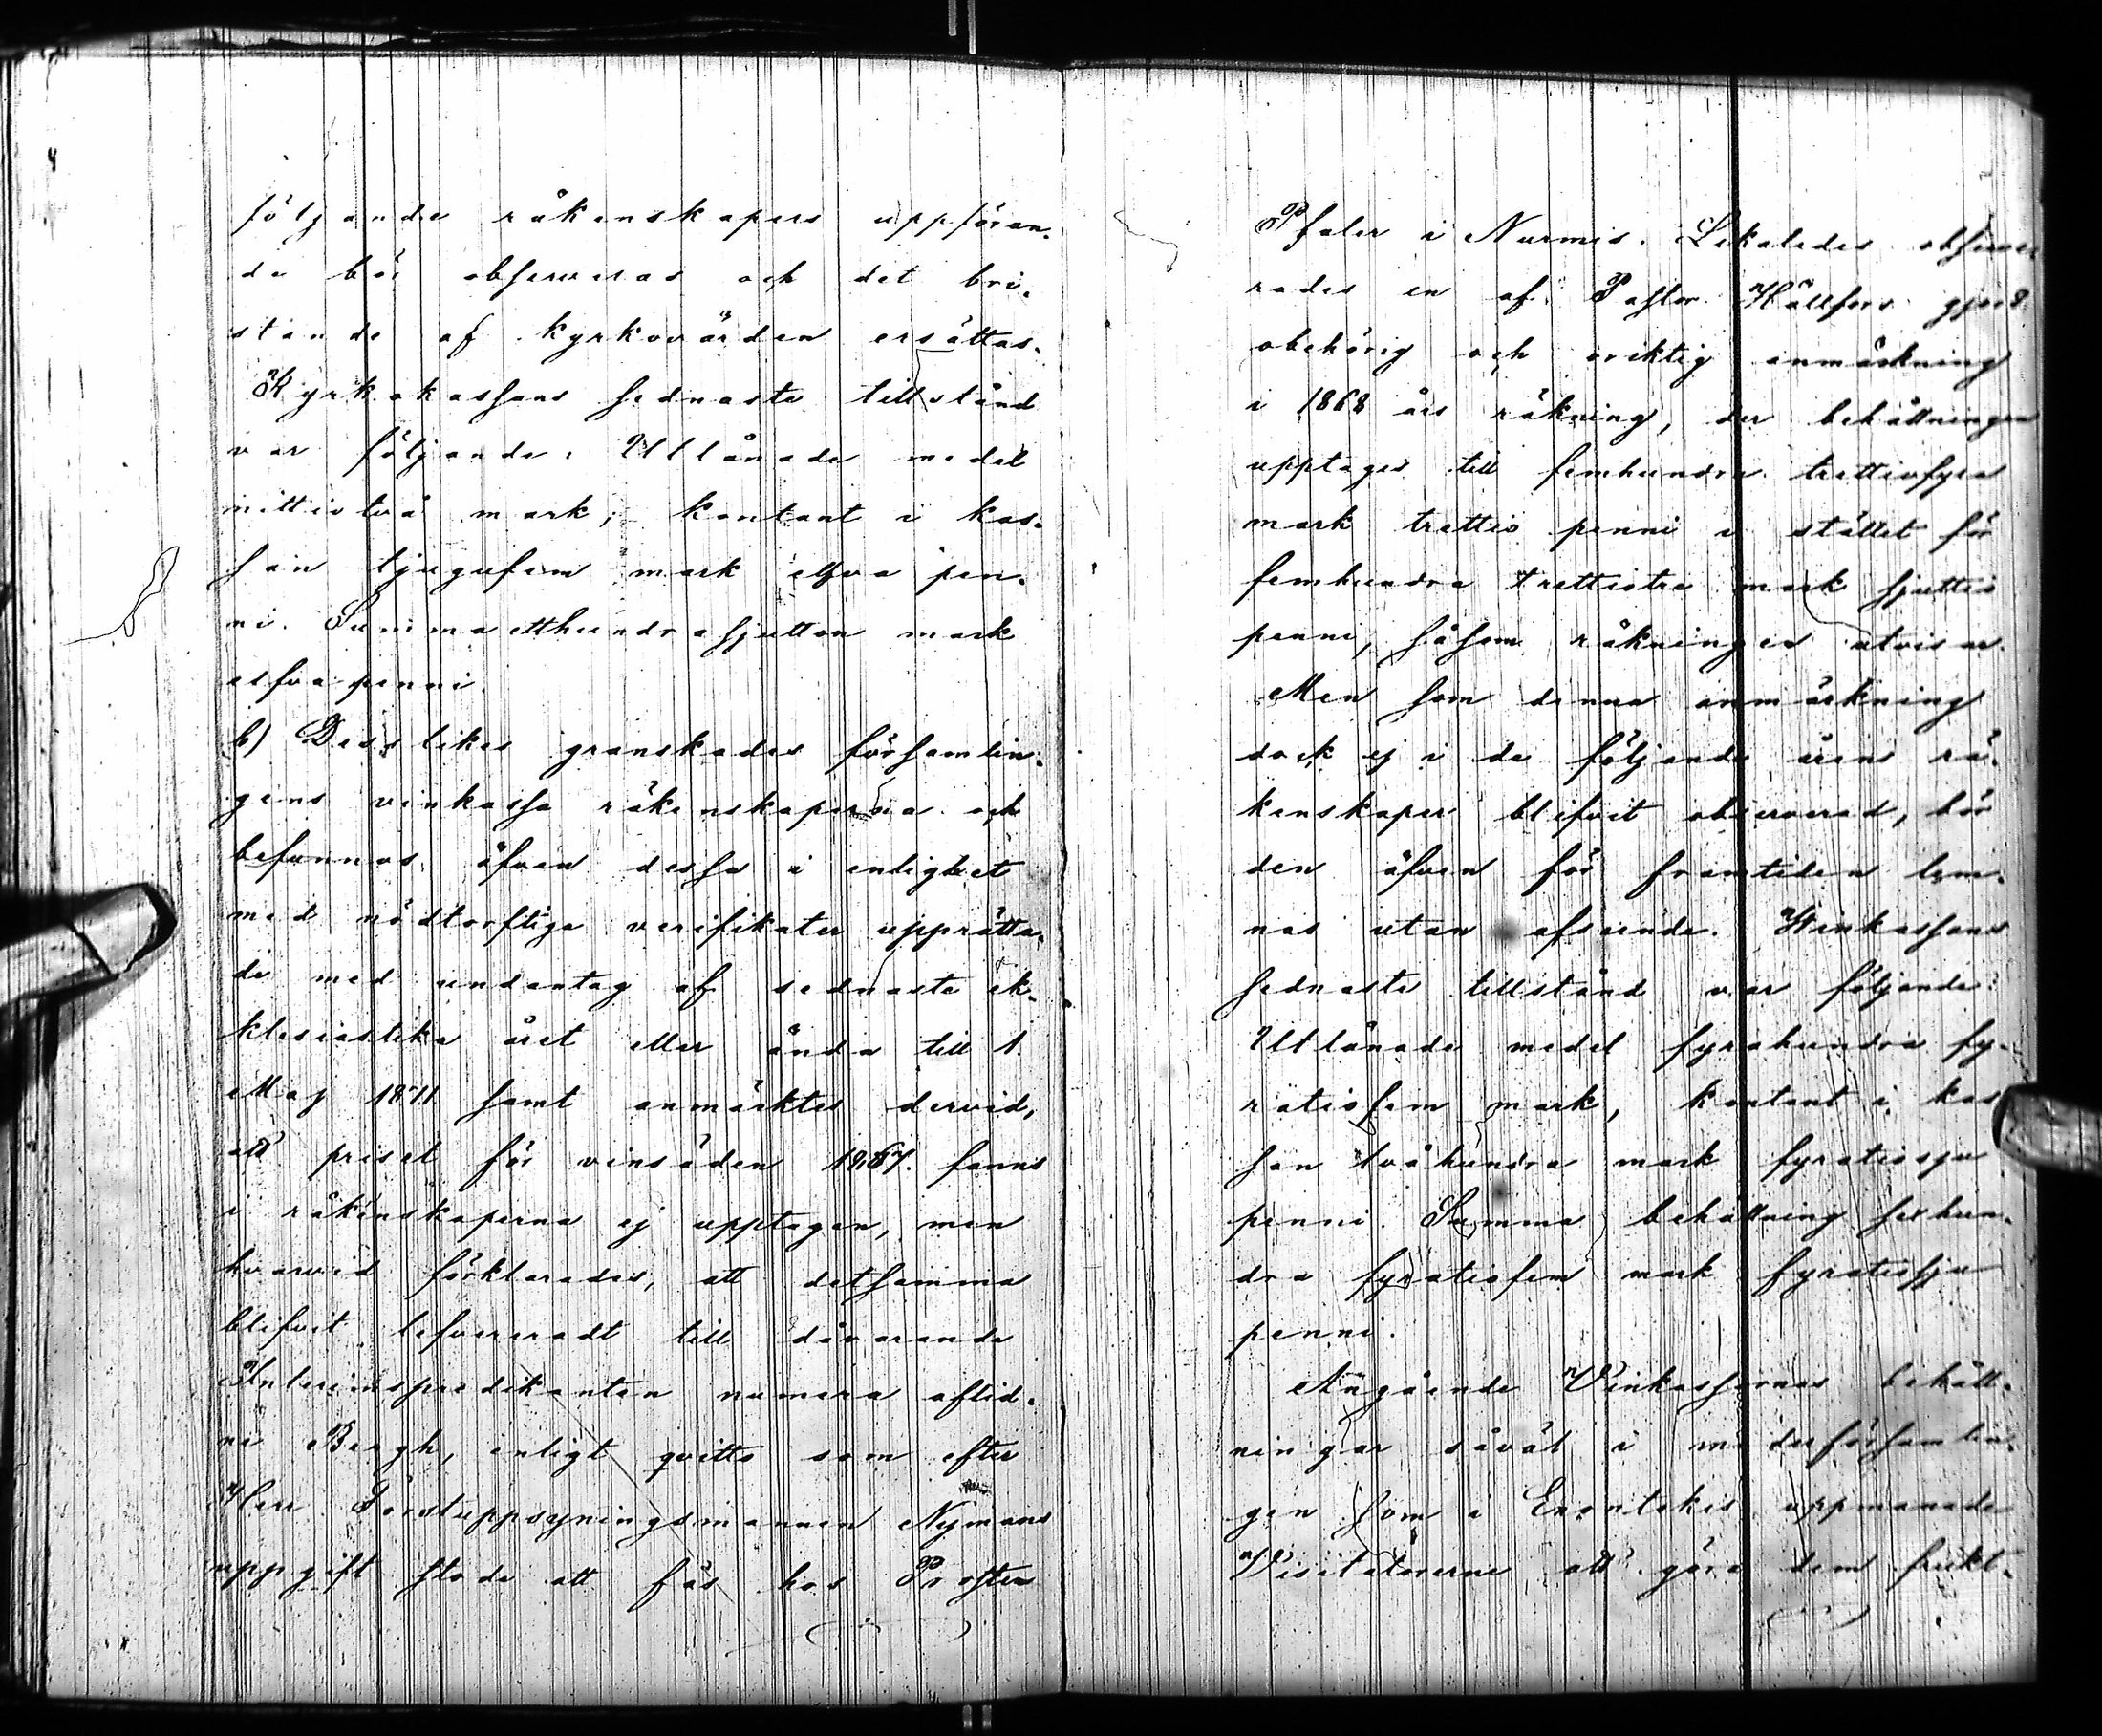 följande räkenskapers uppföran-
de bör observeras och det bri-
stande af kyrkovärden ersättas.
Kyrkokassans sednaste tillstånd
var följande: Utlånade medel
nittiotvå mark; kontant i kas-
san tjugufem mark elfva pen-
ni. Summa etthundrasjutton mark
elfva penni.
b) Desslikes granskades församlin-
gens vinkassa räkenskaperna och
befunnos äfven dessa i enlighet
med nödtorftiga verifikater upprätta-
de med undantag af sednaste ek-
klesiastika året eller ända till 1
Maj 1871 samt anmärktes dervid,
att priset för vinsäden 1867 fanns
i räkenskaperna ej upptagen, men
hvarvid förklarades, att detsamma
blifvit lefvereradt till dåvarande
Interimspredikanten numera aflid-
ne Bergh, enligt qvitto som efter
Herr Forstuppsyningsmannen Nymans
uppgift stode att fås hos Prosten
Pfaler i Nurmis. Likaledes observe
rades en af Pastor Hällfors gjord
obehörig och oriktig anmärkning
i 1868 års räkning, der behållningen
upptages till femhundra trettiofyra
mark trettio penni i stället för
femhundra trettiotre mark sjuttio
penni, såsom räkningen utvisar.
Men som denna anmärkning
dock ej i de följande årens rä-
kenskaper blifvit observerad, bör
den äfven för framtiden lem-
nas utan afseende. Vinkassans
sednaste tillstånd var följande:
Utlånade medel fyrahundra fy-
ratiofem mark, kontant i kas
san tvåhundra mark fyratiosju
penni. Summa behållning sexhun-
dra fyratiofem mark fyratiosju
penni.
Angående Vinkassornas behåll-
ningar såväl i moderförsamlin-
gen som i Enontekis uppmanade
Visitatorerne att göra dem frukt-